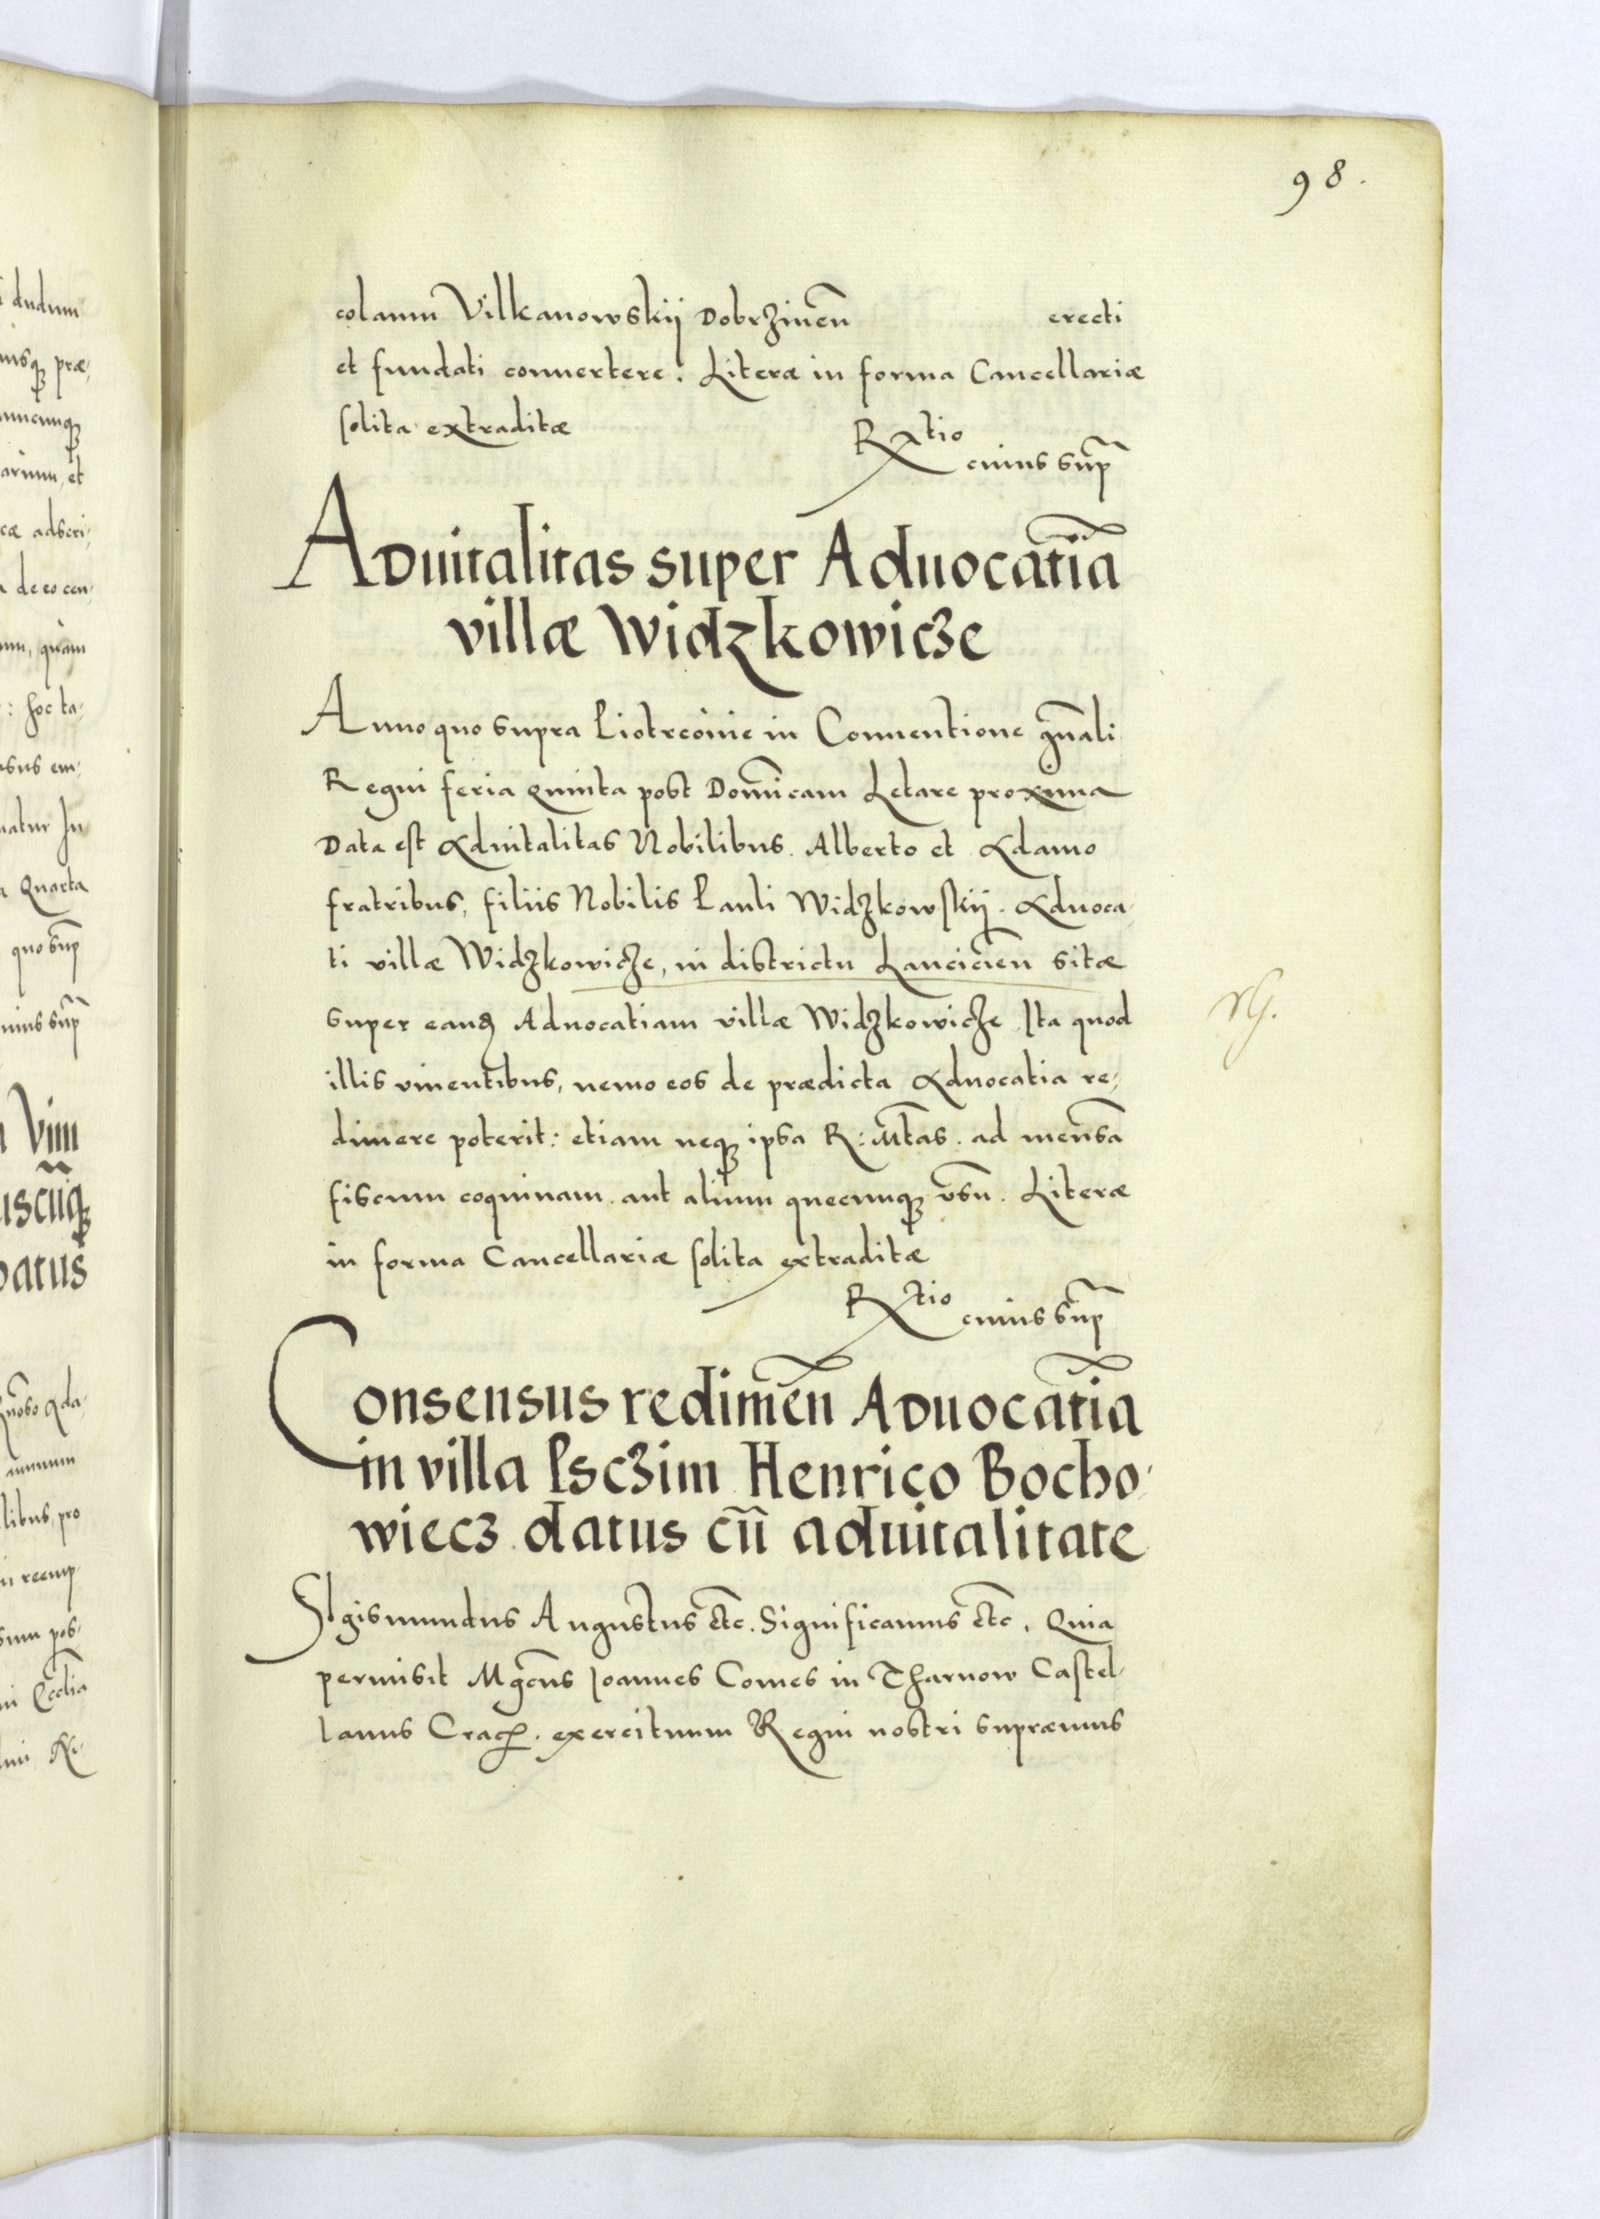 98.
dudum
præ,
et
adscri,
de eo cen,
quàm
: hoc ta,
em,
In
Quarta
quo sup̃
sup̃
Vim
uscũq
patus
pro
pos,
Eccl̃ia
Ni,
colaum Vilkanowskij Dobrzineñ erecti
et fundati conuertere. Literæ in forma Cancellariæ
solita extraditæ
R tio
cuius sup̃
Aduitalitas super Aduocatiã
villæ Widzkowicze
Anno quo supra Piotrcouie in Conuentione gñali
Regni feria quinta post Domĩcam Letare proxima
Data est Aduitalitas Nobilibus. Alberto et Adamo
fratribus, filiis Nobilis Pauli Widzkowskij. Aduoca,
ti villæ Widzkowicze, in districtu Lancicieñ sitæ
super eand Aduocatiam villæ Widzkowicze Ita quod
illis viuentibus, nemo eos de prædicta Aduocatia re,
dimere poterit: etiam neq ipsa R: Mtas. ad mensã
fiscum coquinam aut alium quecunq vsũ. Literæ
in forma Cancellariæ solita extraditæ
R tio
cuius sup̃
Consensus redimeñ Aduocatiã
in villa Psczim Henrico Bocho,
wiecz datus cũ aduitalitate
Sigismundus Augustus etc. Significamus etc. Quia
permisit Mgcus Ioannes Comes in Tharnow Castel,
lanus Crac. exercituum Regni nostri supræmus